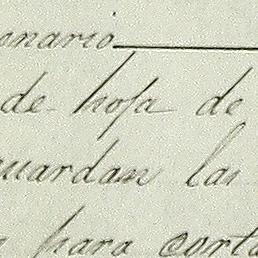 onario
de hoja de
guardan las
para corta